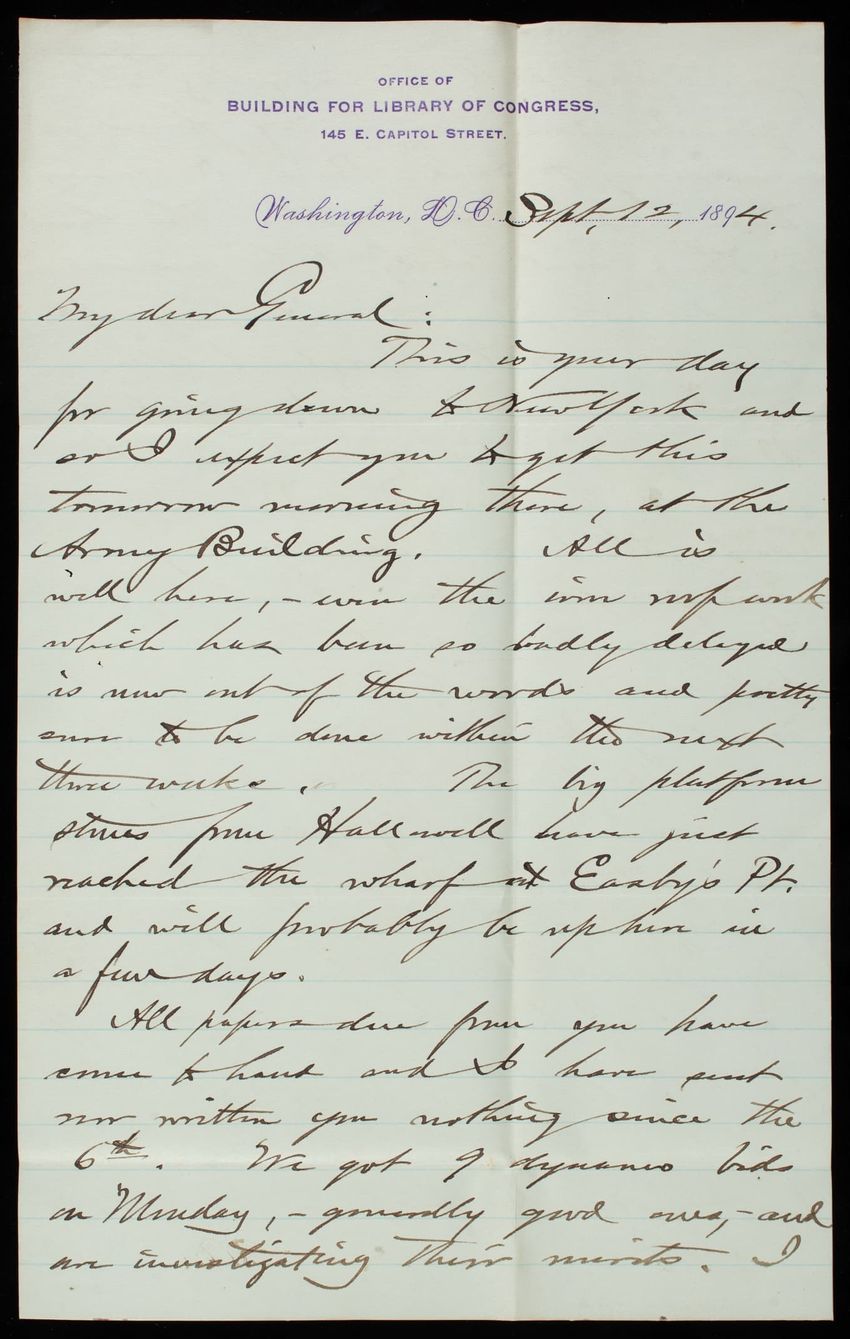 OFFICE OF
BUILDING FOR LIBRARY OF CONGRESS,
145 E. CAPITOL STREET.
Washington, D.C. Sept, 12, 1894.
My dear General :
This is your day
for going down to New York and
so I expect you to get this
tomorrow morning there, at the
Army Building. All is
well here, – even the iron roof work
which has been so badly delayed
is now out of the woods and pretty
sure to be done within the next
three weeks. The big platform
stones from Hallowell have just
reached the wharf at Easby's Pt.
and will probably be up here in
a few days.
All papers due from you have
come to hand and I have sent
nor written you nothing since the
6th. We got 9 dynamo bids
on Monday, – generally good ones, – and
are investigating their merits. I